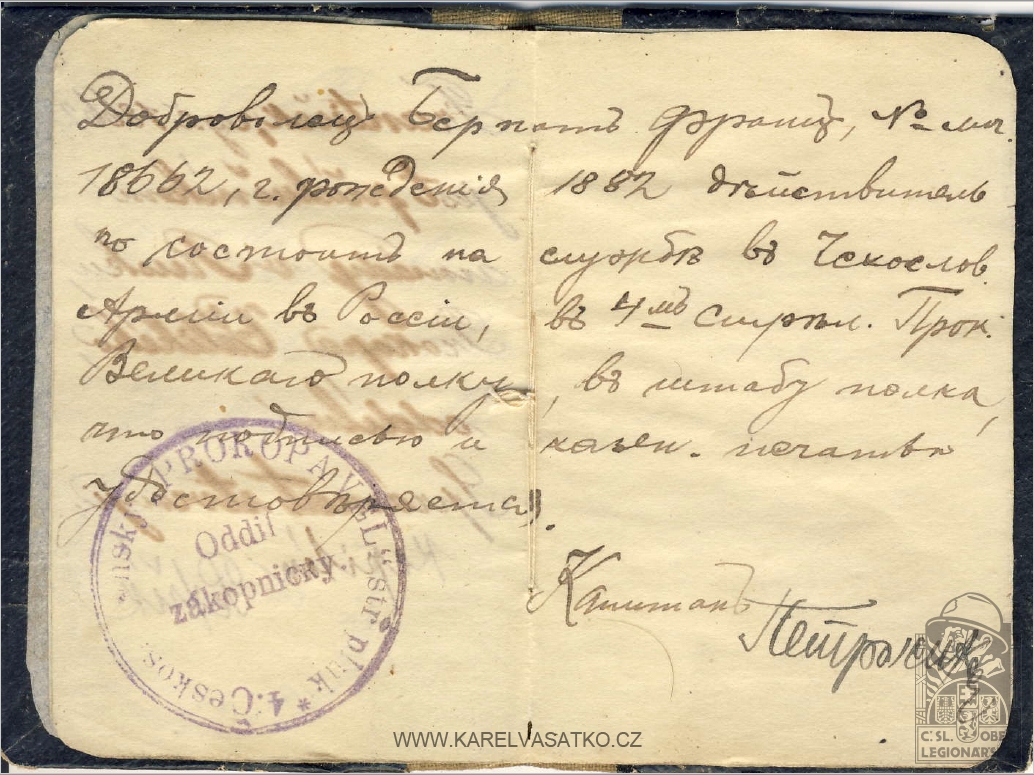 Доброволец Бернатъ Францъ, № мат.
18662, г. рожденія 1882 дѣйствитель
но состоитъ на службѣ въ Чехослов.
Арміи въ Россіи, въ 4мъ стрѣл. Прок.
Великаго полку, въ штабу полка,
что подписью и казен. печатью
удостовѣряется.
Капитанъ
4. Českoslo enský "PROKOPA VEL." stř. pluk *
Oddíl
zákopnický.
WWW.KARELVASATKO.CZ
Č.SL. OBE
LEGIONÁŘS